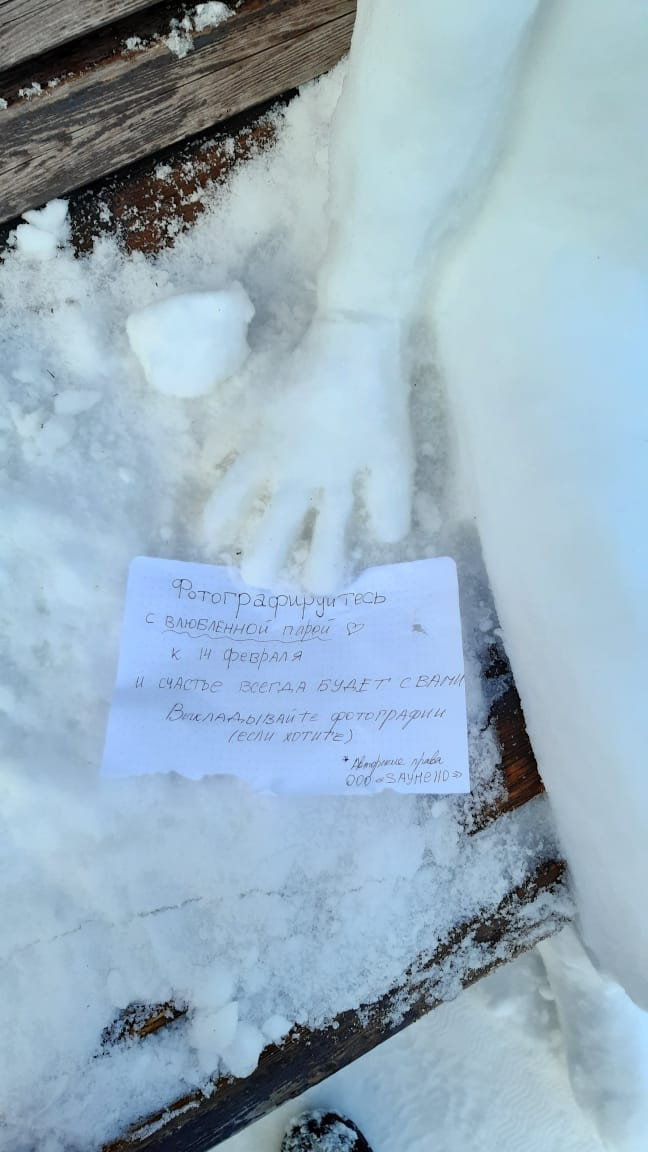 Фотографируйтесь
с влюбленной парой ♡
к 14 февраля
и счастье всегда будет с вами
Выкладывайте фотографии
(если хотите)
* Авторские права
ООО «ЗАУМЕ